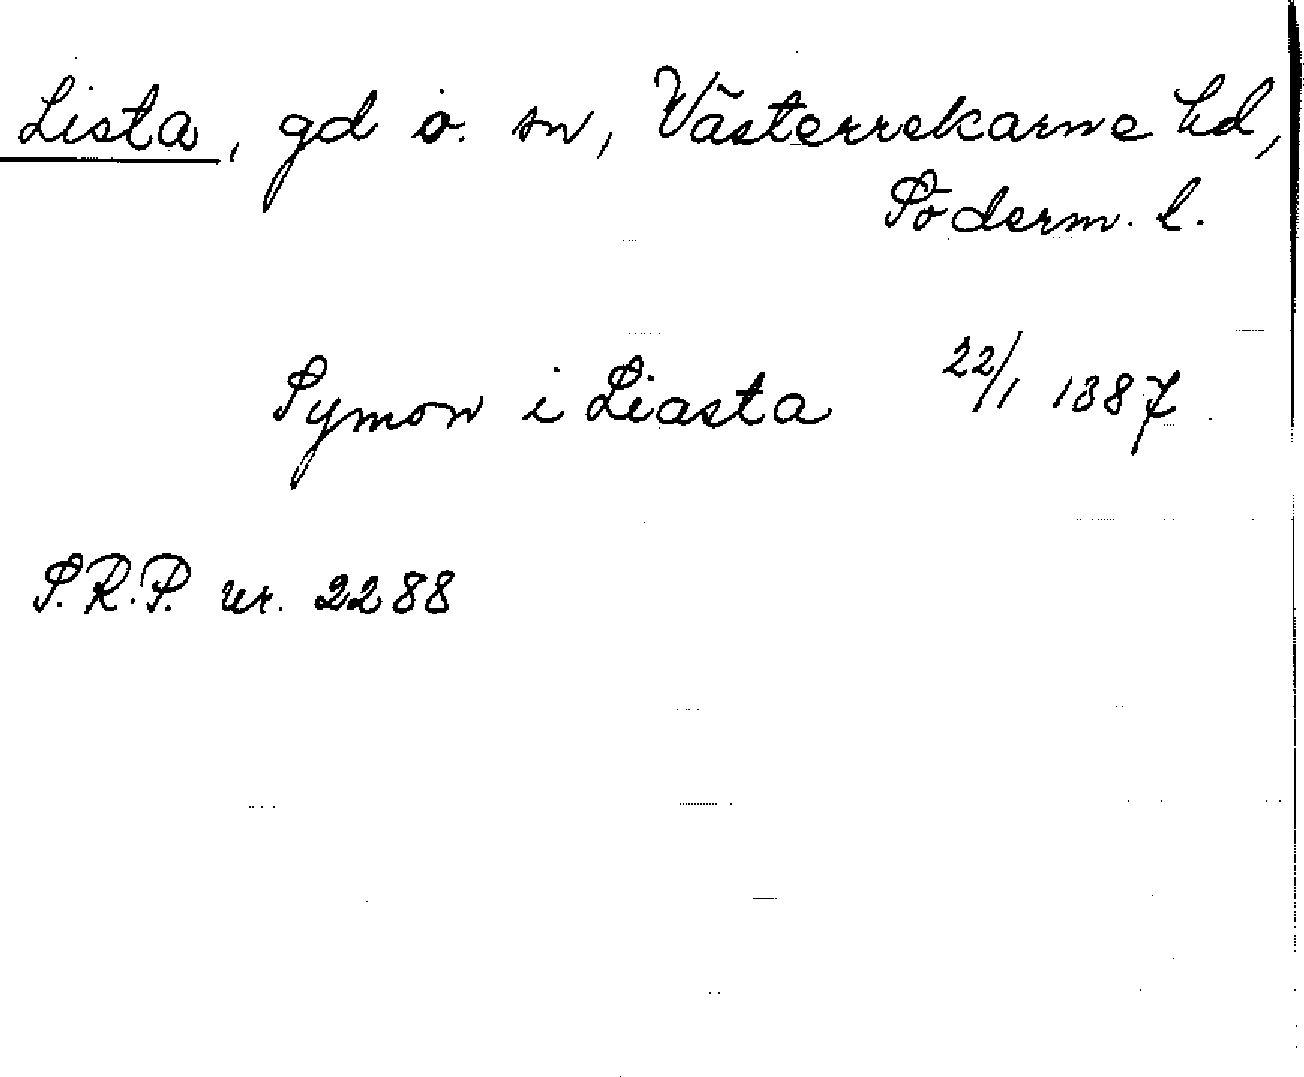 Lista, gd o. sn, Västerrekarne hd,
Söderm. l.
Symon i Liasta 22/1 1387
S.R.P. nr. 2288